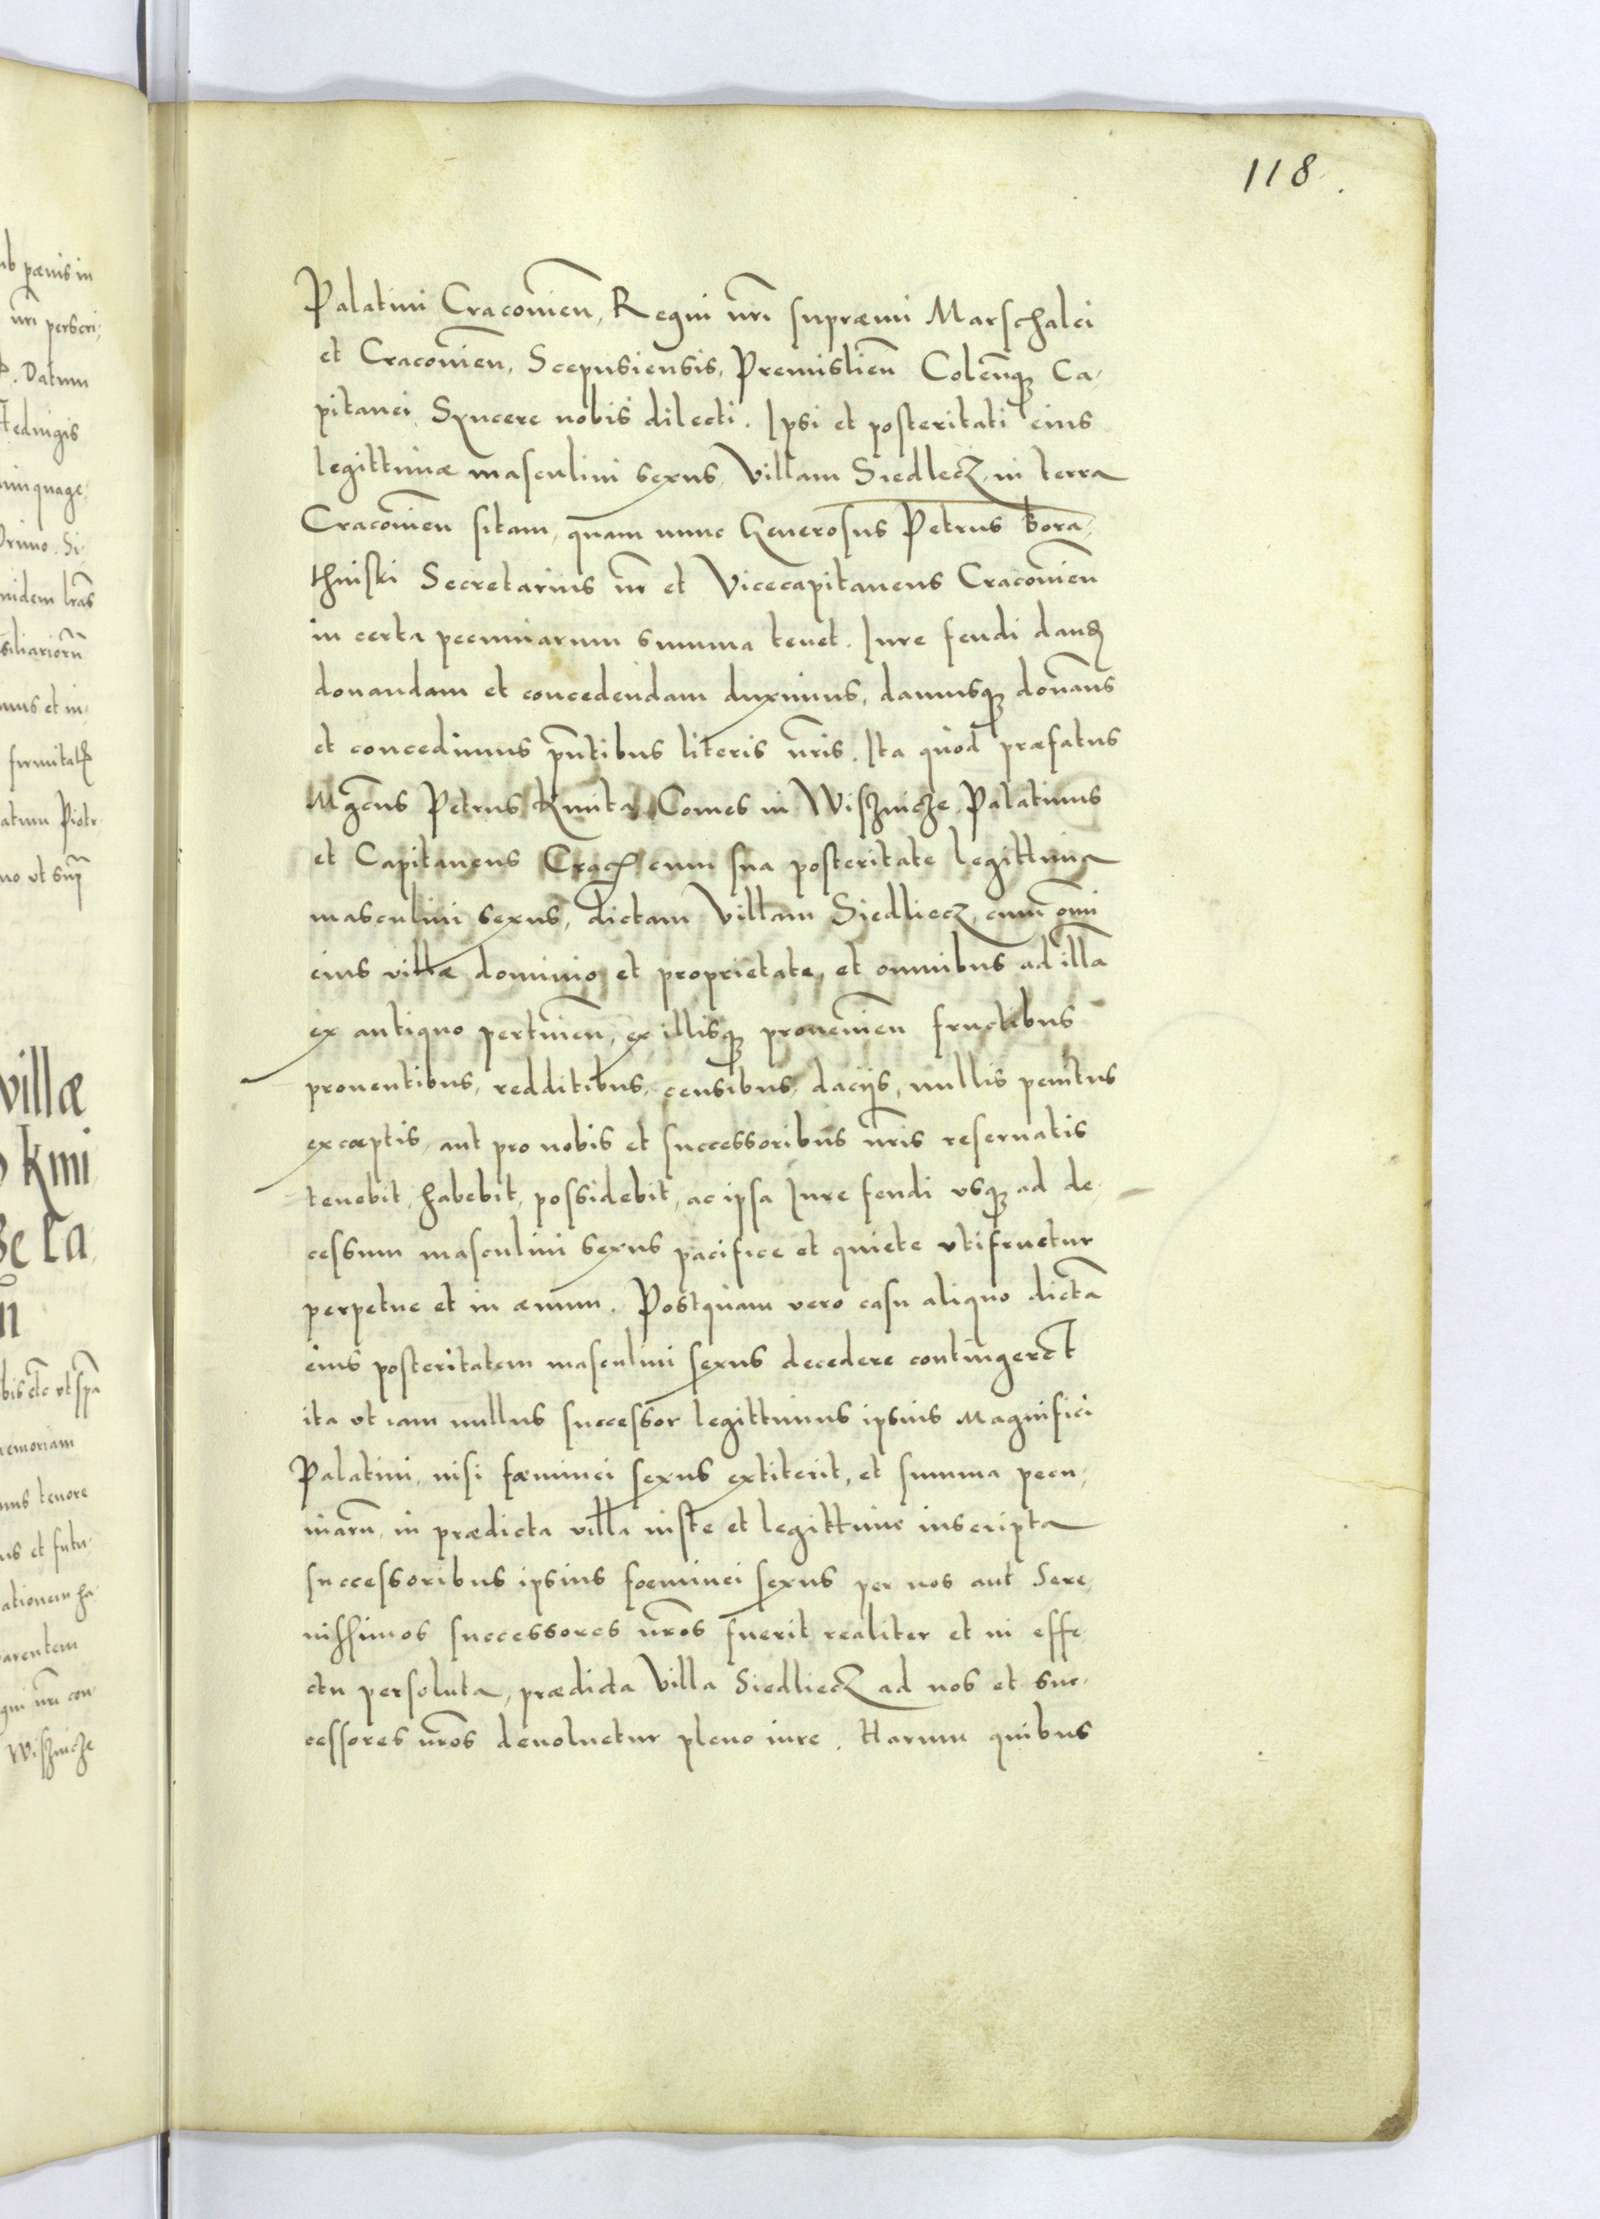 118.
Palatini Cracouien̄, Regni nr̄i supræmi Marschalci
et Cracouien̄, Scepusiensis, Premislien̄ Colen̄q; Ca,
pitanei, Syncere nobis dilecti. Ipsi et posteritati eius
legittimæ masculini sexus, Villam Siedlecz, in terra
Cracouien̄ sitam, quam nunc Generosus Petrus bora,
thinski Secretarius nr̄ et Vicecapitaneus Cracouien̄
in certa pecuniarum summa tenet. Iure feudi dand
donandam et concedendam duximus, damusq; donam̄s
et concedimus pn̄tibus literis nr̄is. Ita quod præfatus
Mgn̄cus Petrus Kmita Comes in Wisznicze, Palatinus
et Capitaneus Crac cum sua posteritate legittima
masculini sexus, dictam Villam Siedliecz, cum om̄i
eius villæ dominio et proprietate, et omnibus ad illā
ex antiquo pertinen̄, ex illisq; prouenien̄ fructibus
prouentibus, redditibus, censibus, dacijs, nullis penitus
excæptis, aut pro nobis et successoribus nr̄is reseruatis
tenebit, habebit, possidebit, ac ipsa Iure feudi vsq; ad de,
cessum masculini sexus pacifice et quiete vtifruetur
perpetue et in æuum. Postquam vero casu aliquo dictā
eius posteritatem masculini sexus decedere contingeret
ita vt iam nullus successor legittimus ipsius Magnifici
Palatini, nisi fæminei sexus extiterit, et summa pecu,
niarū, in prædicta villa iuste et legittime inscripta
successoribus ipsius foeminei sexus per nos aut Sere,
nissimos successores nr̄os fuerit realiter et in effe,
ctu persoluta, prædicta Villa Siedliecz ad nos et suc,
cessores nr̄os deuoluetur pleno iure. Harum quibus
villæ
kmi